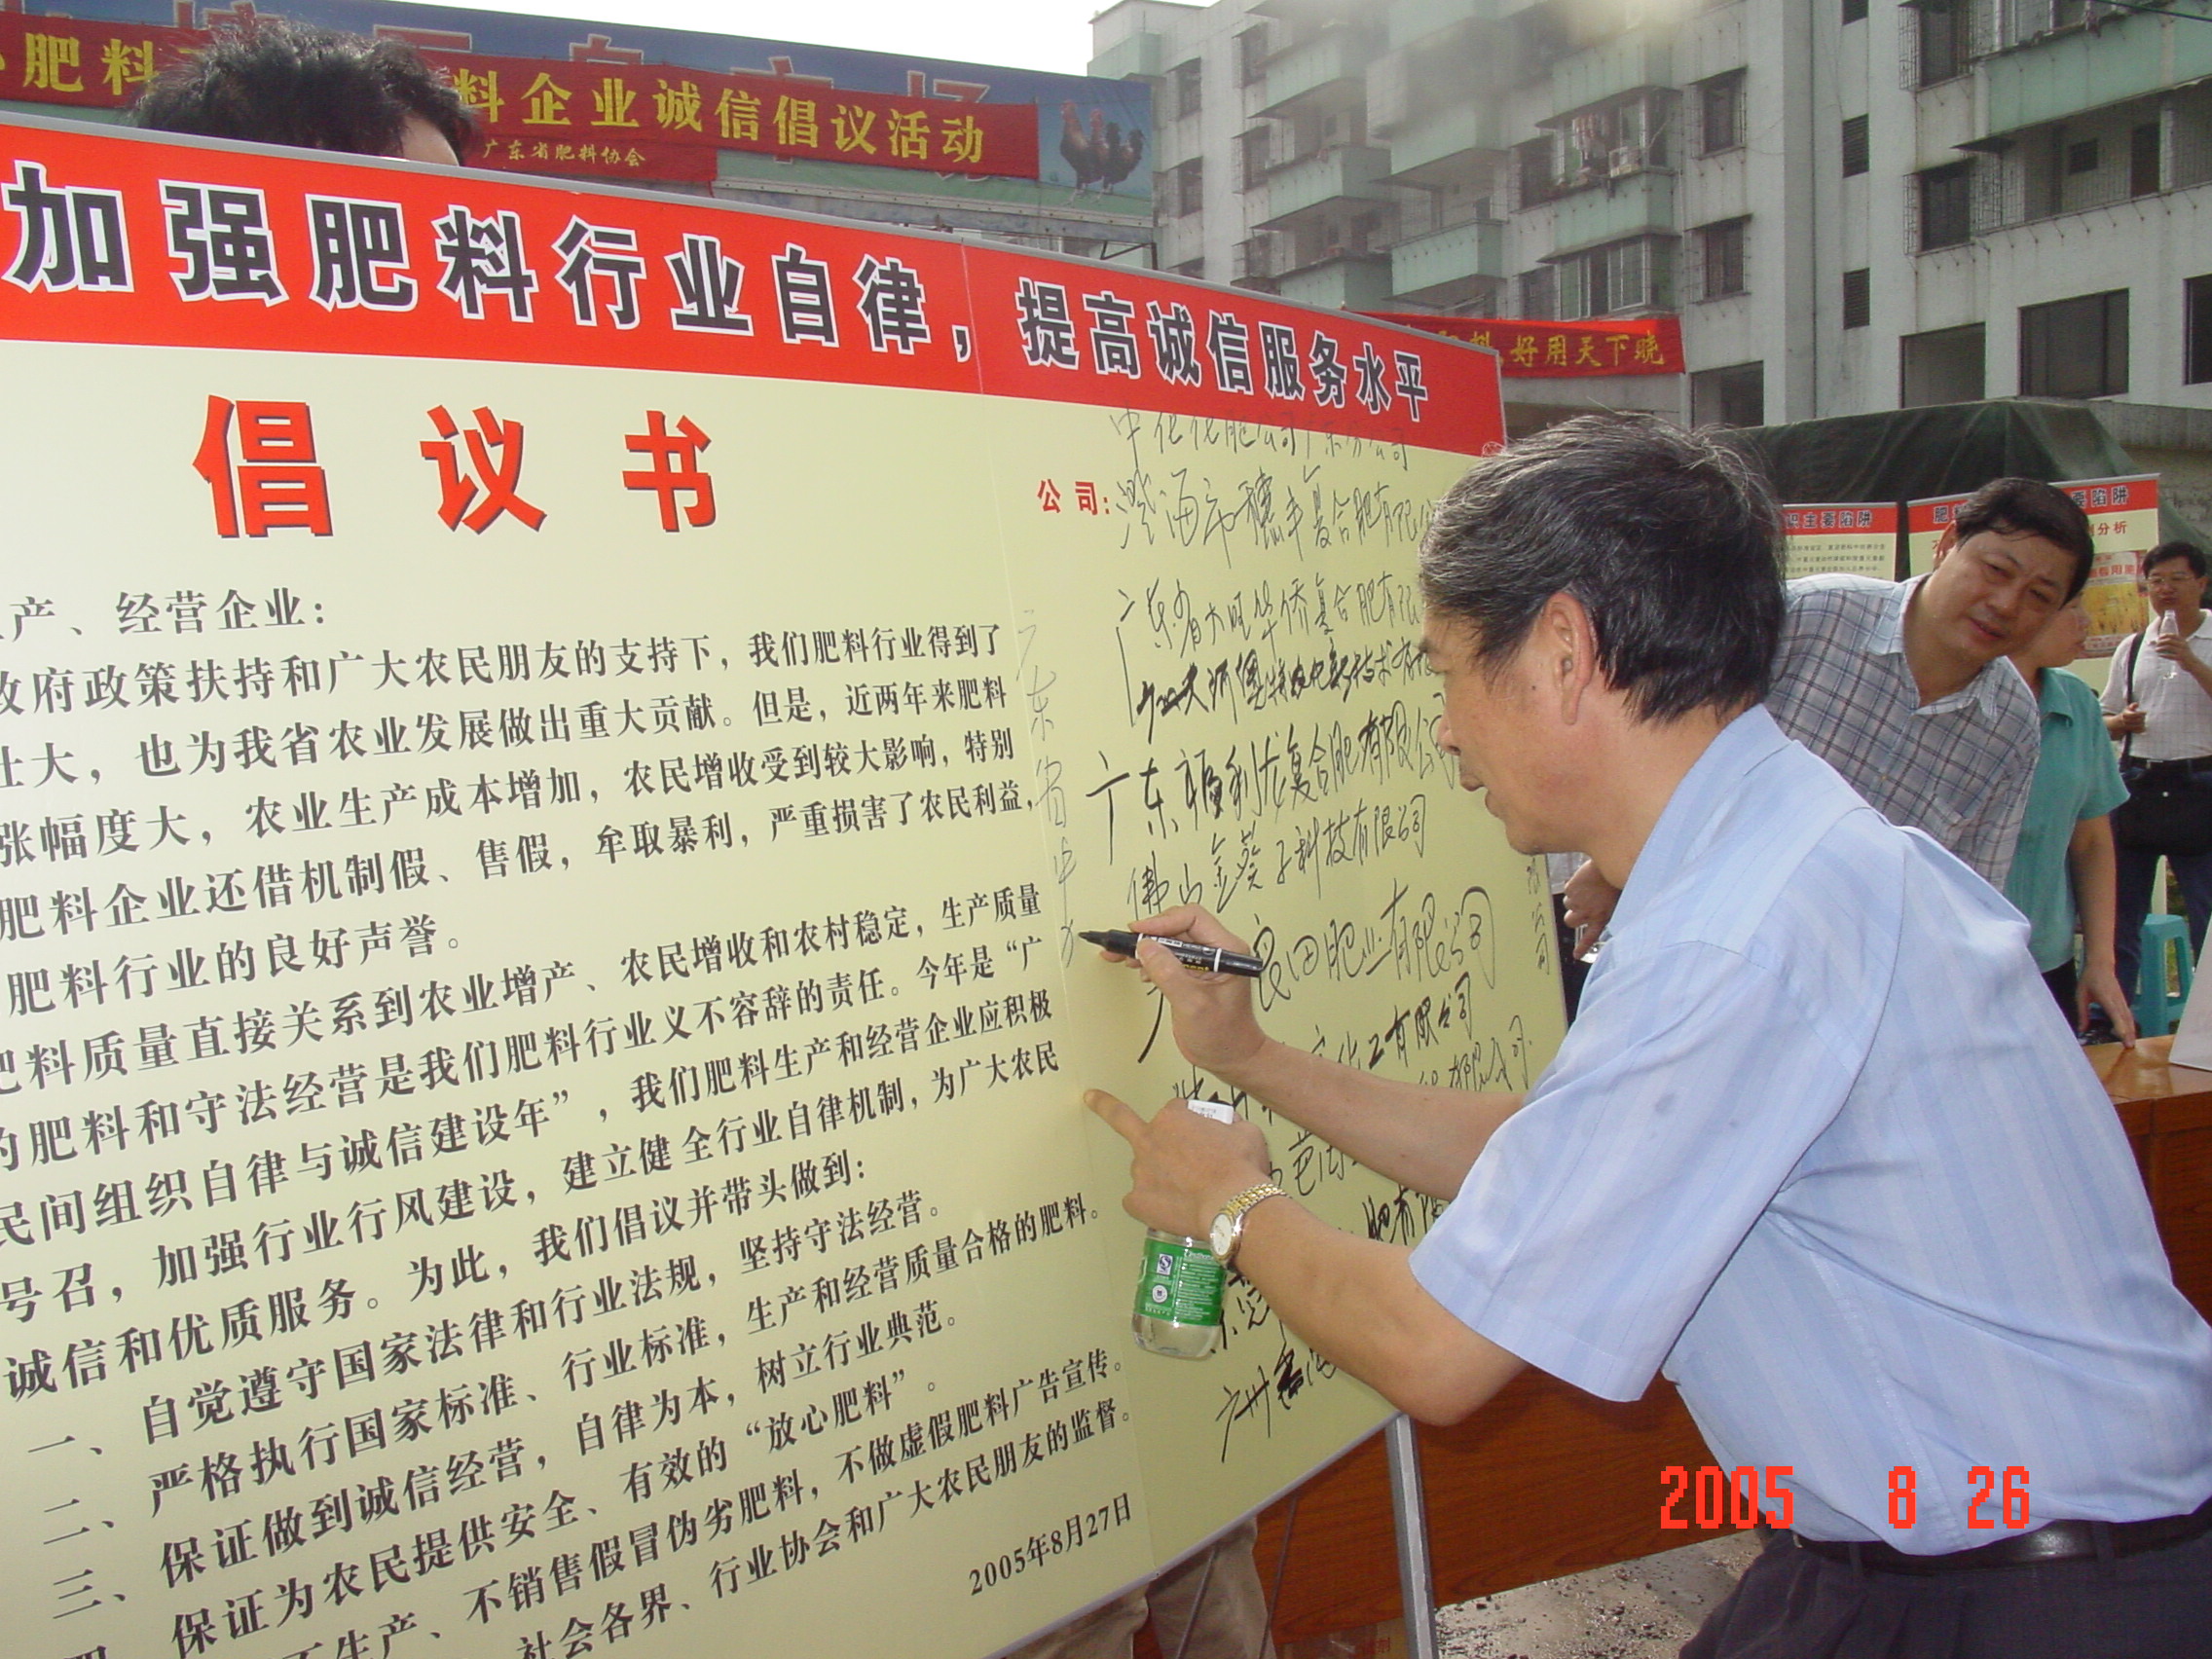 肥料
料企业诚信倡议活动
广东省肥料协会
加强肥料行业自律，提高诚信服务水平
好用天下晓
倡议书
产、经营企业：
政府政策扶持和广大农民朋友的支持下，我们肥料行业得到了
壮大，也为我省农业发展做出重大贡献。但是，近两年来肥料
张幅度大，农业生产成本增加，农民增收受到较大影响，特别
肥料企业还借机制假、售假，牟取暴利，严重损害了农民利益，
肥料行业的良好声誉。
肥料质量直接关系到农业增产、农民增收和农村稳定，生产质量
的肥料和守法经营是我们肥料行业义不容辞的责任。今年是“广
民间组织自律与诚信建设年”，我们肥料生产和经营企业应积极
号召，加强行业行风建设，建立健全行业自律机制，为广大农民
诚信和优质服务。为此，我们倡议并带头做到：
一、自觉遵守国家法律和行业法规，坚持守法经营。
二、严格执行国家标准、行业标准，生产和经营质量合格的肥料。
三、保证做到诚信经营，自律为本，树立行业典范。
四、保证为农民提供安全、有效的“放心肥料”。
不生产、不销售假冒伪劣肥料，不做虚假肥料广告宣传。
社会各界、行业协会和广大农民朋友的监督。
2005年8月27日
公司：
中化化肥公司广东分公司
澄海市穗丰复合肥有限公
广东省大旺华侨复合肥有限
广东福利龙复合肥有限公司
佛山金葵子科技有限公司
良田肥业有限公司
化工有限公司
有限公司
肥有限
广州
广东省中
识主要陷阱
肥
要陷阱
分析
2005 8 26